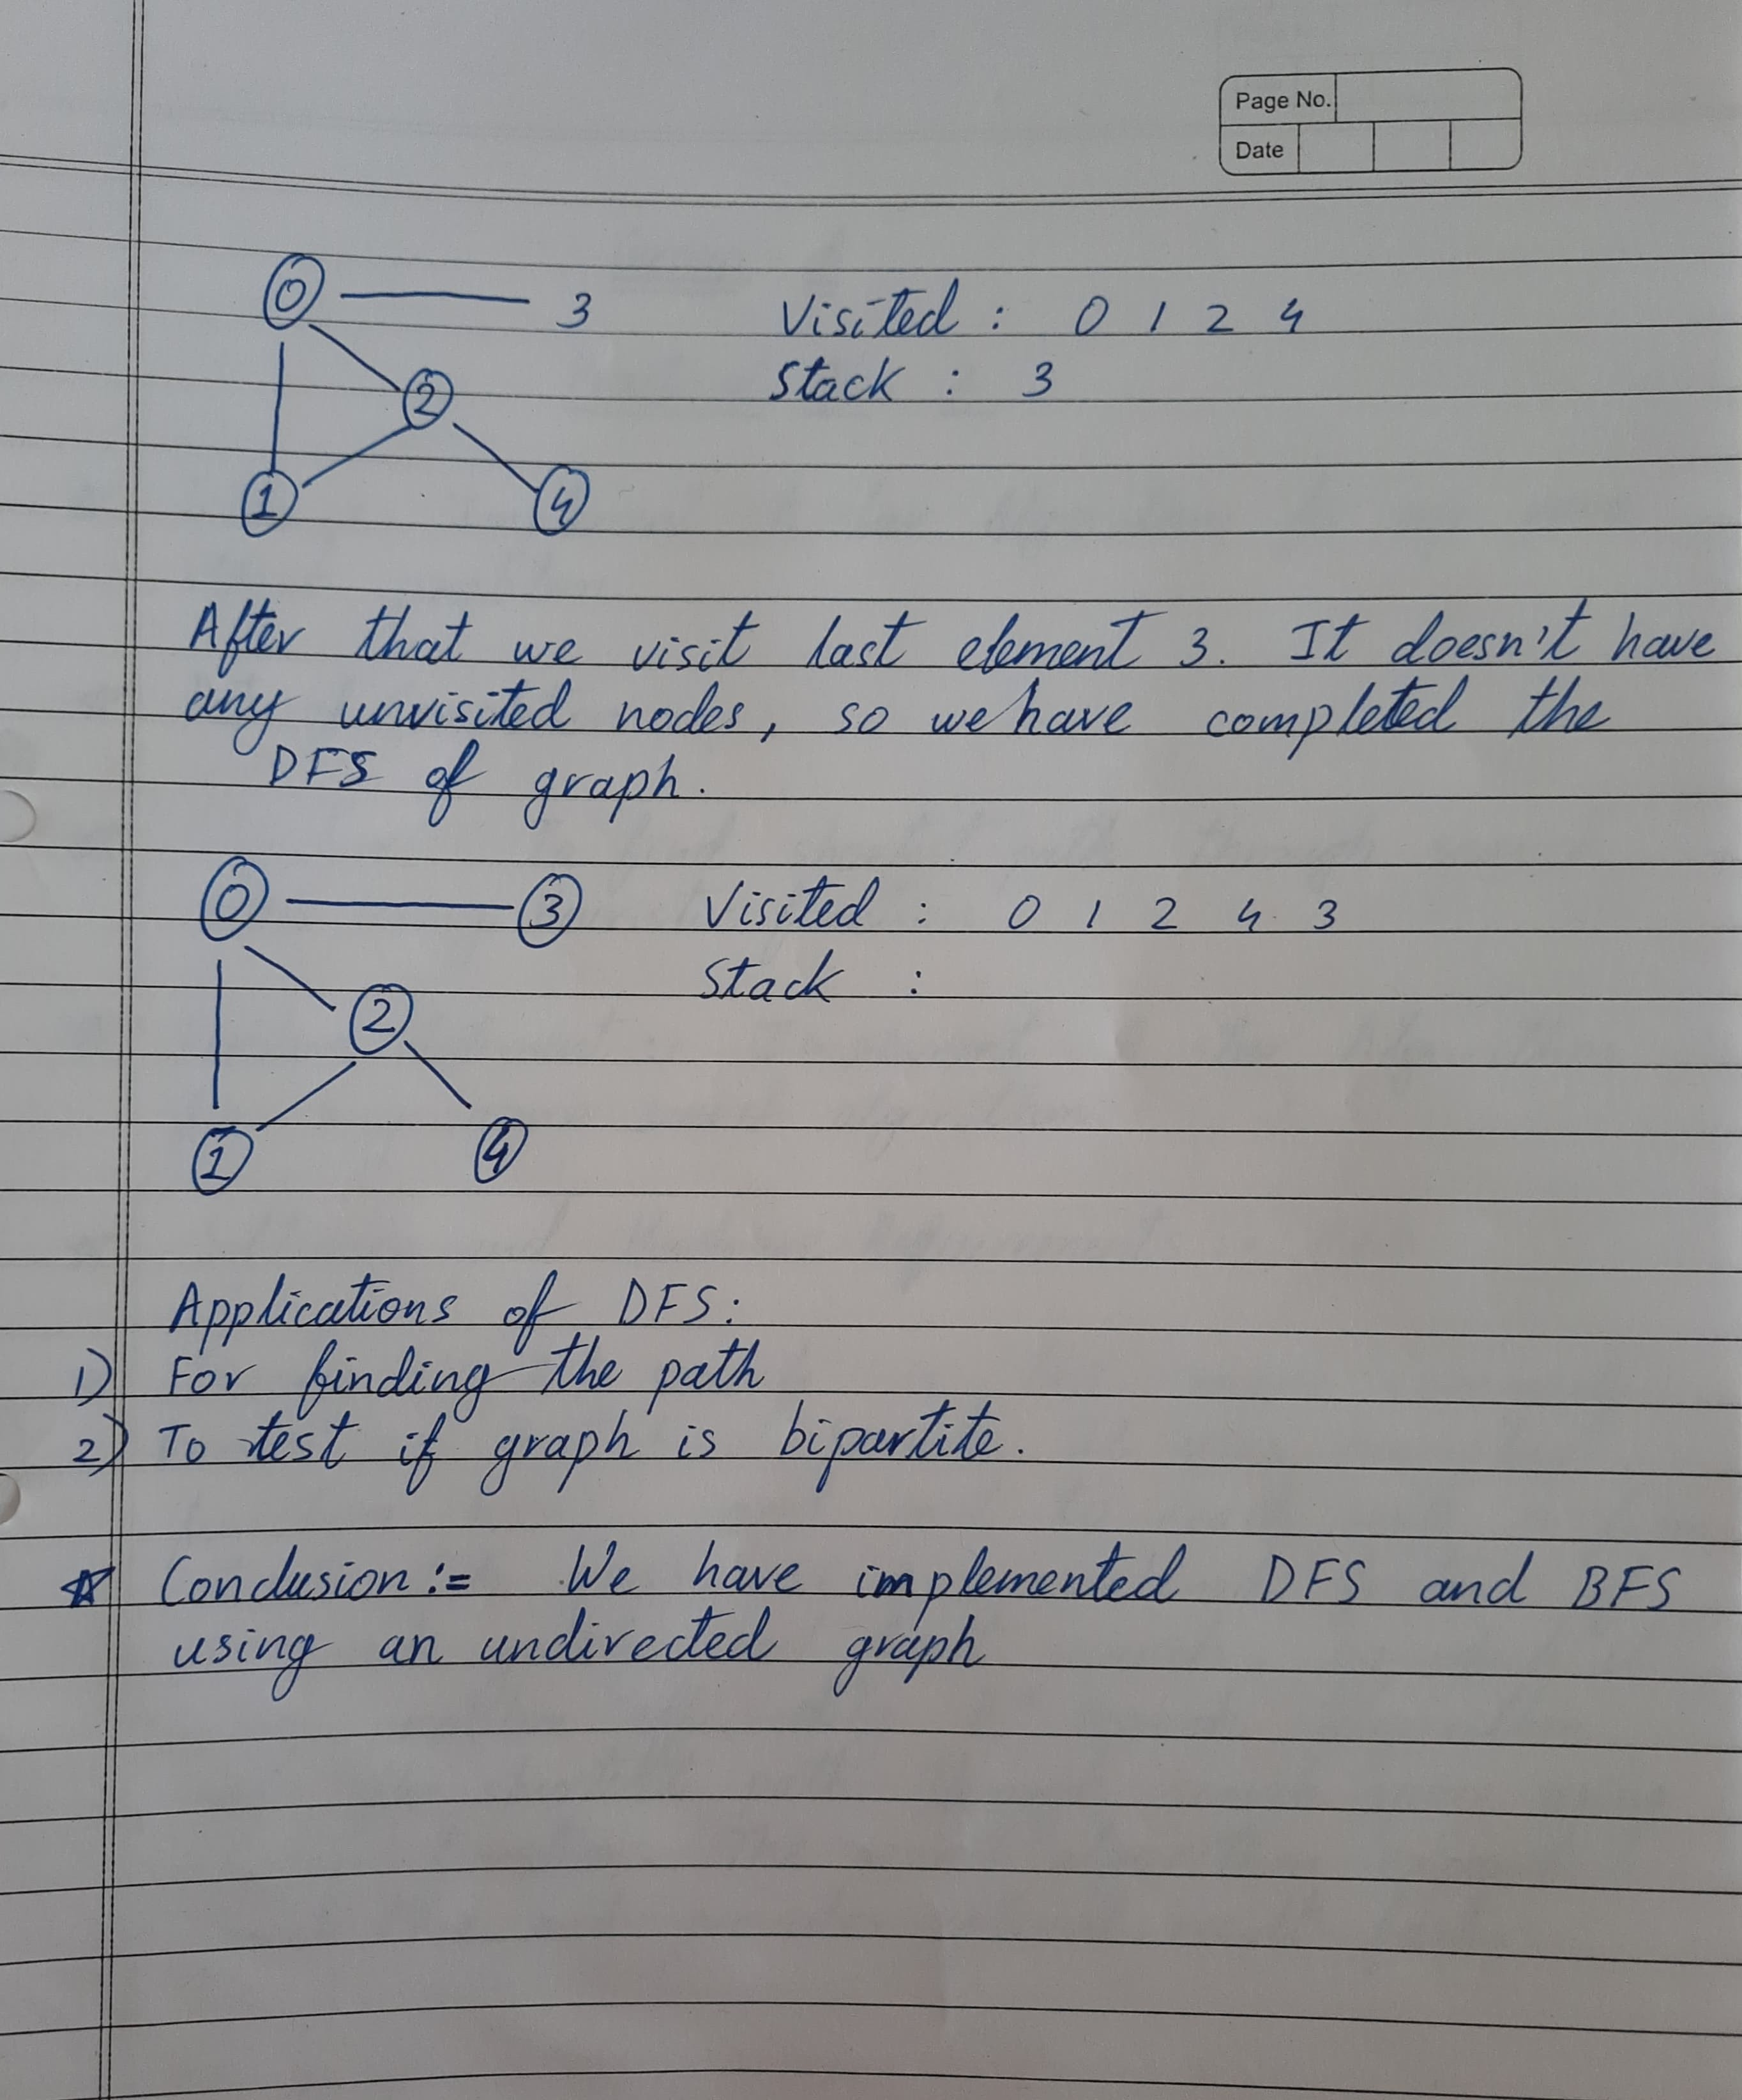 Page No.
Date
0 3 Visited : 0 1 2 4
Stack : 3
2
1 4
After that we visit last element 3. It doesn't have
any unvisited nodes, so we have completed the
DFS of graph.
0 3 Visited : 0 1 2 4 3
Stack :
2
1 4
Applications of DFS:
1) For finding the path
2) To test if graph is bipartite.
Conclusion := We have implemented DFS and BFS
using an undirected graph